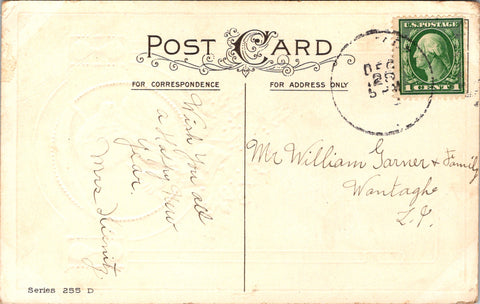 POST CARD
FOR CORRESPONDENCE
FOR ADDRESS ONLY
U.S. POSTAGE
1 CENT 1
DEC
Wish You all
a Happy New
Year.
Mrs
Mr William Garner & Family
Wantaghe
L.I.
Series 255 D